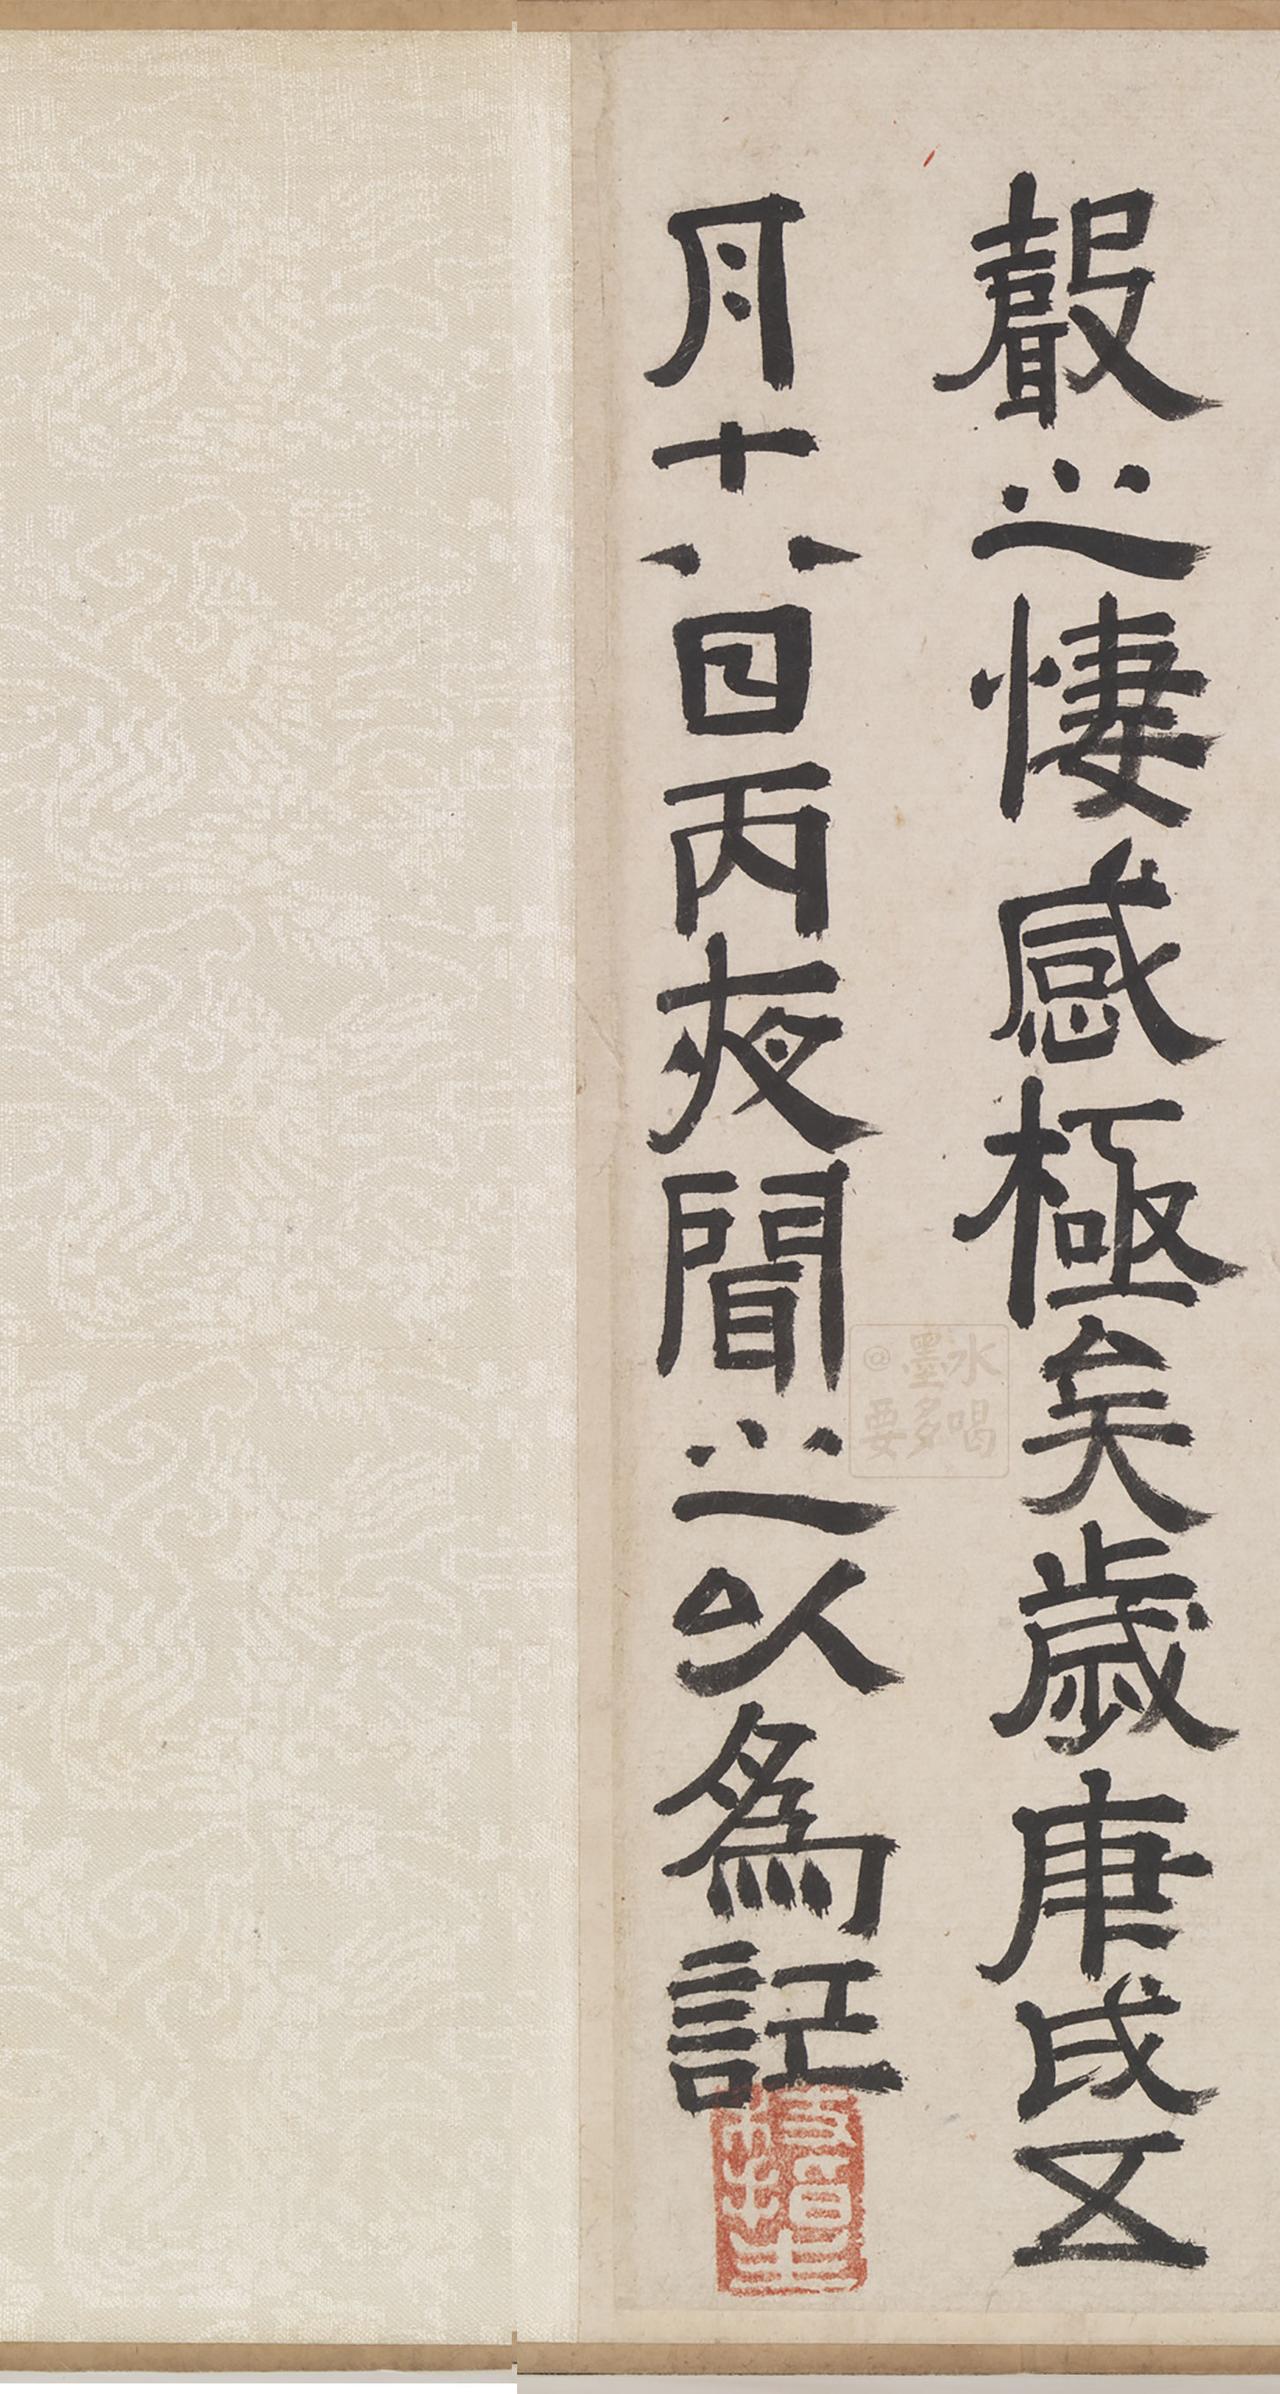 聲之悽感極矣歲庚戌五
月十八日丙夜聞之以為記
@墨水
要多喝